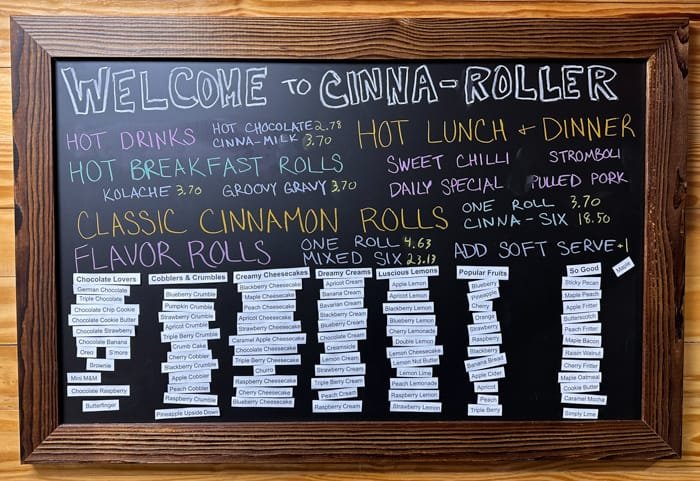 WELCOME TO CINNA-ROLLER
HOT DRINKS
HOT CHOCOLATE 2.78
CINNA-MILK 3.70
HOT BREAKFAST ROLLS
KOLACHE 3.70 GROOVY GRAVY 3.70
HOT LUNCH + DINNER
SWEET CHILLI STROMBOLI
DAILY SPECIAL PULLED PORK
CLASSIC CINNAMON ROLLS
ONE ROLL 3.70
CINNA-SIX 18.50
FLAVOR ROLLS
ONE ROLL 4.63
MIXED SIX 23.13
ADD SOFT SERVE +1
Maple
Chocolate Lovers
German Chocolate
Triple Chocolate
Chocolate Chip Cookie
Chocolate Cookie Butter
Chocolate Strawberry
Chocolate Banana
Oreo S'more
Brownie
Mini M&M
Chocolate Raspberry
Butterfinger
Cobblers & Crumbles
Blueberry Crumble
Pumpkin Crumble
Strawberry Crumble
Apricot Crumble
Triple Berry Crumble
Crumb Cake
Cherry Cobbler
Blackberry Crumble
Apple Cobbler
Peach Cobbler
Raspberry Crumble
Pineapple Upside Down
Creamy Cheesecakes
Blackberry Cheesecake
Maple Cheesecake
Peach Cheesecake
Apricot Cheesecake
Strawberry Cheesecake
Caramel Apple Cheesecake
Chocolate Cheesecake
Triple Berry Cheesecake
Churro
Raspberry Cheesecake
Cherry Cheesecake
Blueberry Cheesecake
Dreamy Creams
Apricot Cream
Banana Cream
Bavarian Cream
Blackberry Cream
Blueberry Cream
Chocolate Cream
Creamsicle
Lemon Cream
Strawberry Cream
Triple Berry Cream
Peach Cream
Raspberry Cream
Luscious Lemons
Apple Lemon
Apricot Lemon
Blackberry Lemon
Blueberry Lemon
Cherry Lemonade
Double Lemon
Lemon Cheesecake
Lemon Nut Butter
Lemon Lime
Peach Lemonade
Raspberry Lemon
Strawberry Lemon
Popular Fruits
Blueberry
Pineapple
Cherry
Orange
Strawberry
Raspberry
Blackberry
Banana Bread
Apple Cider
Apricot
Peach
Triple Berry
So Good
Sticky Pecan
Maple Peach
Apple Fritter
Butterscotch
Peach Fritter
Maple Bacon
Raisin Walnut
Cherry Fritter
Maple Oatmeal
Cookie Butter
Caramel Mocha
Simply Lime